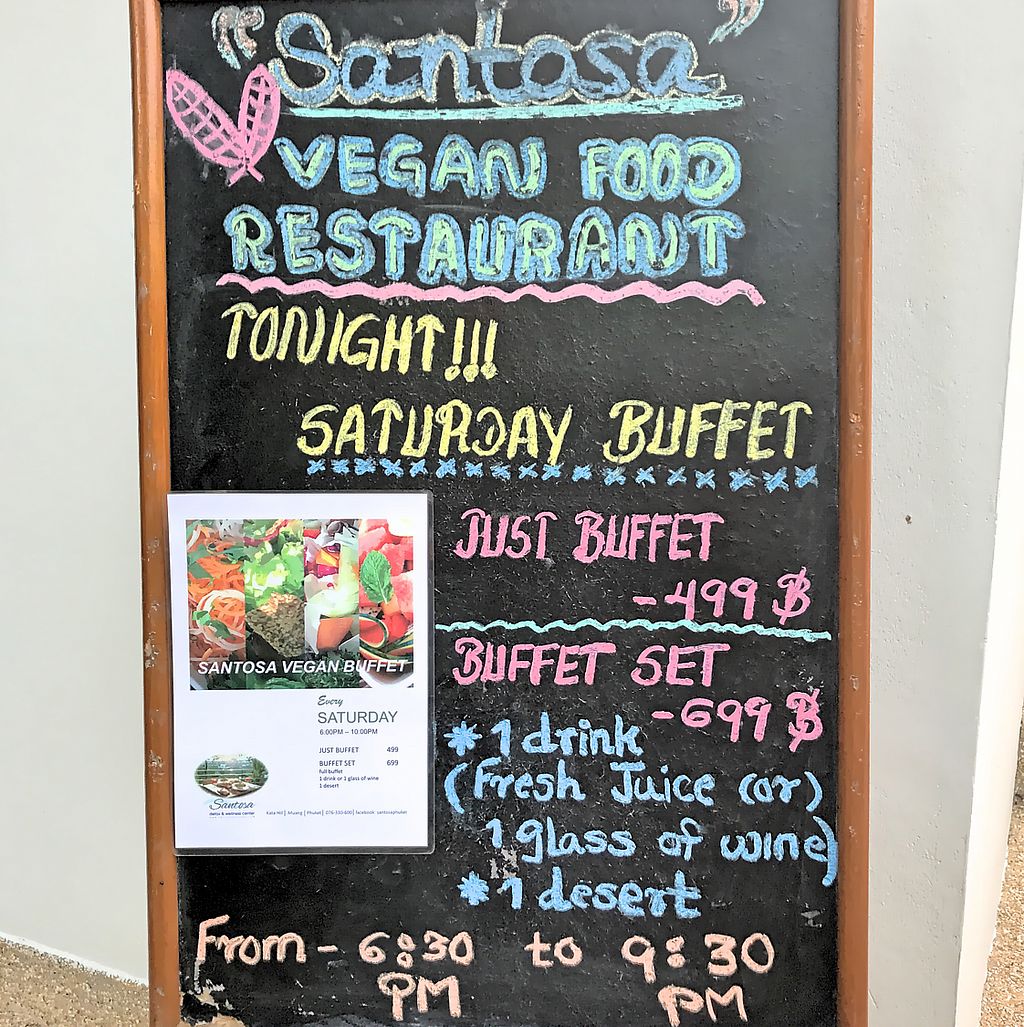 "Santosa"
VEGAN FOOD
RESTAURANT
TONIGHT!!!
SATURDAY BUFFET
JUST BUFFET
-499 ฿
BUFFET SET
-699 ฿
*1 drink
(Fresh Juice (or)
1 glass of wine)
*1 desert
From - 6:30 to 9:30
PM PM
SANTOSA VEGAN BUFFET
Every
SATURDAY
6:00PM – 10:00PM
JUST BUFFET 499
BUFFET SET 699
full buffet
1 drink or 1 glass of wine
1 desert
Santosa
detox & wellness center
Kata Hill| Muang | Phuket| 076-330-600| facebook: santosaphuket